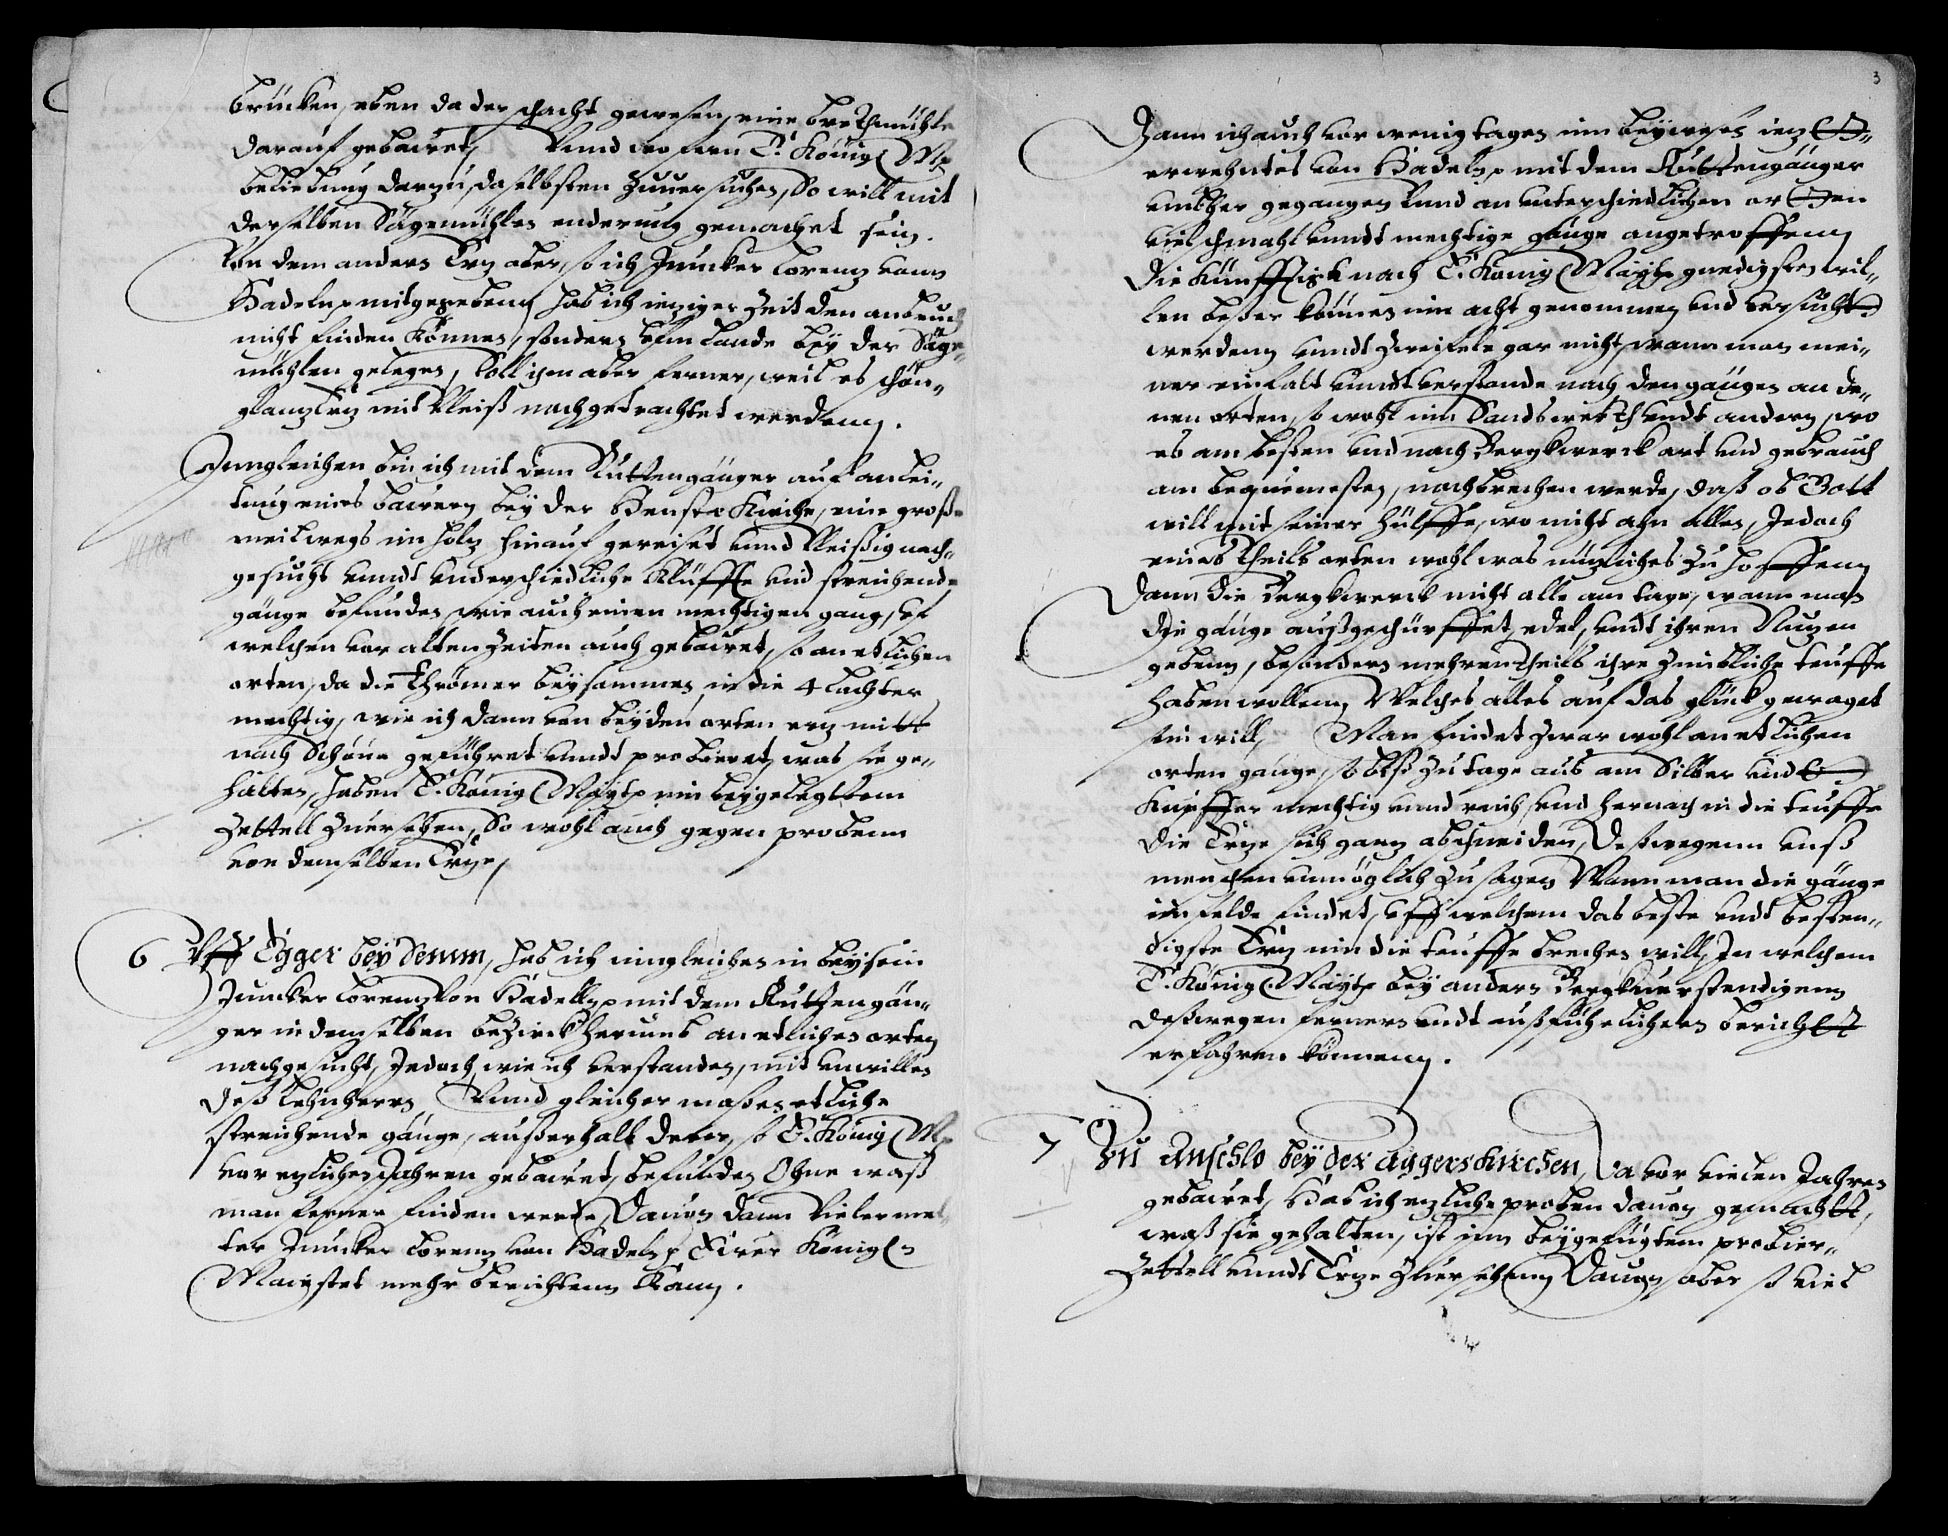 brücken, eben da der schacht gewesen, eine brethmühle
darauf gebauet, Vnnd wo fern E. König M
beliebung darzu, daselbsten zuuersuchen, So will mit
derselben Sägemühlen enderung gemachet sein.
Von dem andern Ertz aber, so ich Juncker Lorentz vonn
Hadeln mitgegebenn, hab ich ietziger Zeit den anbruch
nicht finden können, sondern beim Lande bey der Säge-
mühlen gelegen, Soll ihm aber ferner, weil es schön
glantz Ertz mit fleiß nachgetrachtet werdenn.
Inngleichen bin ich mit dem Ruttengänger auf anlei-
tung eines bauern bey der Kirche, eine große
meilwegs im holtz hinauf gereiset vnnd fleißig nach-
gesucht vnndt vnderschiedliche Klüffte vnd streichende
gänge befunden, wie auch einen mechtigen gang, uf
welchen vor alten Zeiten auch gebauet, so an etlichen
orten, da die Thrömer beysammen, in die 4 Lachter
mechtig, wie ich dann von beyden orten ertz mitt
nach Schöne geführet vnndt probieret, was sie ge-
halten, haben E. König Maytt im beygelegtem
Zettell zuersehen, So wohl auch gegen probenn
von demselben Ertze,
6 Vff Egger bey Semm, hab ich inngleichen in beysein
Juncker Lorentz von Hadelln mit dem Ruttengän-
ger in demselben bezirck herumb an etlichen orten
nachgesucht, Jedoch, wie ich verstanden, mit vnwillen
deß Lehnherrn Vnnd gleicher maßen etliche
streichende gänge, außerhalb deren, so E. König M
vor etzlichen Jahren gebauet, befunden Ohne waß
man ferner finden werde, Dauon dann vielermel-
ter Juncker Lorentz von Hadeln Eurer König
Mayestet mehr berichtenn kann.
3
Dann ich auch vor wenig tagen im beywesen ietz
erwehntes von Hadeln mit dem Ruttengänger
vmbher gegangen vnnd an vnterschiedlichen orthen
viel schmahl vnndt mechtige gänge angetroffenn,
die künfftig nach E. König Maytt gnedigsten wil-
len beßer können inn acht genommen vnd versucht
werdenn, vnndt zweifele gar nicht, wann man mei-
ner einfalt vnndt verstande nach den gängen an de-
nen orten, so wohl inn vndt andern, wo
es am besten vnd nach Bergkwerck art vnd gebrauch
am bequemesten, nachbrechen werde, daß ob Gott
will mit seiner hülffe, wo nicht ahn allen, Jedoch
eines theils orten wohl was nützliches zu hoffenn,
Dann die bergkwerck nicht alle am tage, wann man
die gänge außgeschürffet, edel, vndt ihren Nutzen
gebenn, besonders mehrentheils ihre ziembliche teuffe
haben wollenn, Welches alles auf das glück gewaget
sein will, Man findet zwar wohl an etlichen
orten gänge, so biß zu tage aus am Silber vnd
Kupffer mechtig vnnd reich, vnd hernach in die teuffe
die Ertze sich gantz abschneiden, Deßwegenn vnß
menschen vnmöglich zu sagen Wann man die gänge
im felde findet, uff welchem das beste vndt besten-
digste Ertz inn die teuffe brechen will, In welchem
E. König. Maytt bey andern Bergkuerstendigenn
deßwegen fernern vndt außführlichern bericht
erfahren könnenn.
7 Zu Anschlo bey der Aggerskirchen, Da vor vielen Jahren
gebauet, Hab ich etzliche proben dauon gemacht,
waß sie gehalten, ist im beygefügtem probier-
Zettell vnndt Ertze zuersehenn, Dauon aber so viel